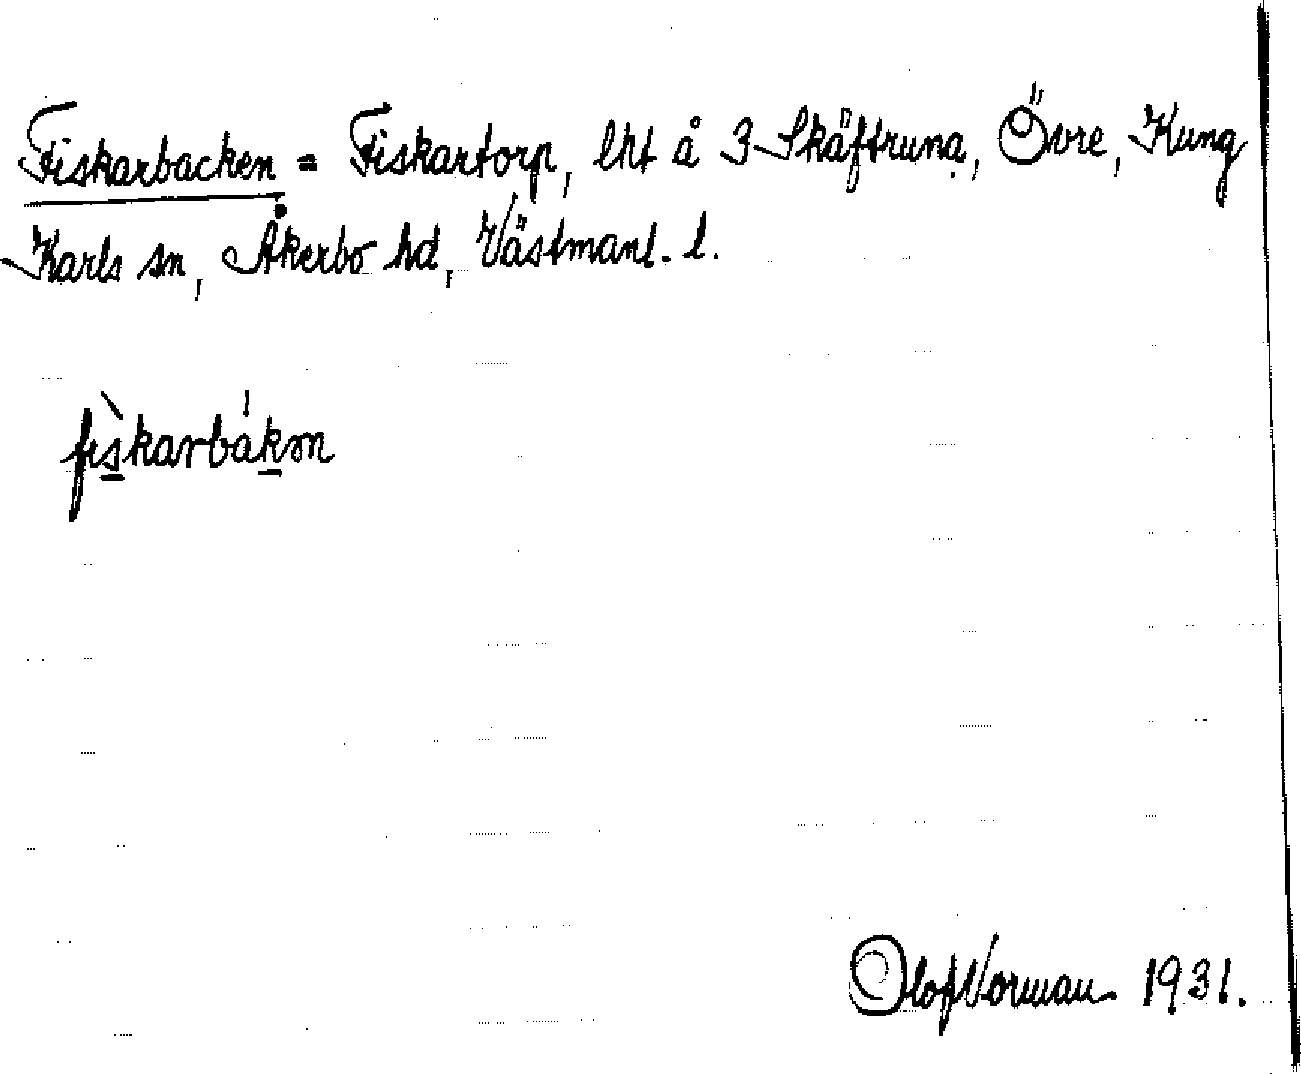 Fiskarbacken = Fiskartorp, lht å 3 Skäftruna, Övre, Kung
Karls sn, Åkerbo hd, Västmanl. l.
fìs̲karbák̲øn
Olof Norman 1931.